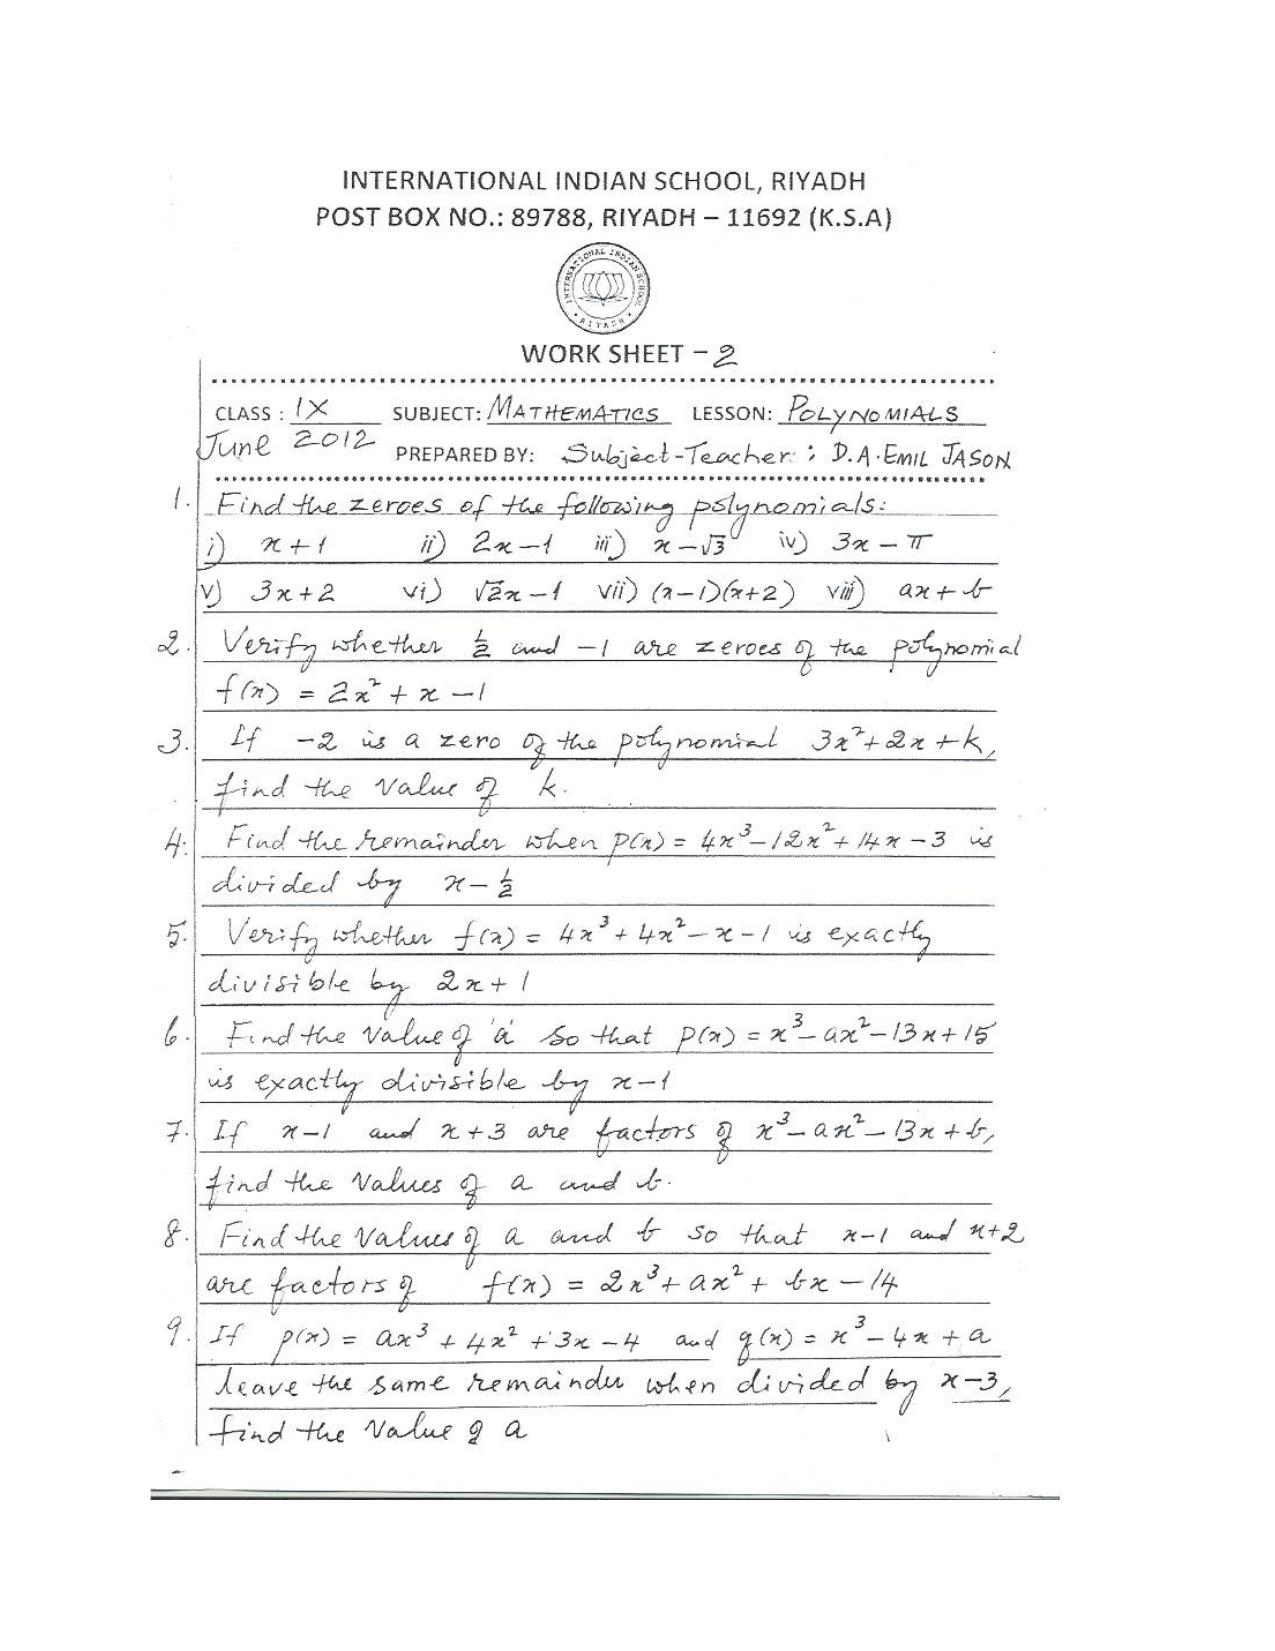 INTERNATIONAL INDIAN SCHOOL, RIYADH
POST BOX NO.: 89788, RIYADH – 11692 (K.S.A)
INTERNATIONAL INDIAN SCHOOL
• RIYADH •
WORK SHEET – 2
CLASS : IX SUBJECT: MATHEMATICS LESSON: POLYNOMIALS
June 2012 PREPARED BY: Subject-Teacher : D.A.EMIL JASON
1. Find the zeroes of the following polynomials:
i) x+1 ii) 2x−1 iii) x−√3 iv) 3x−π
v) 3x+2 vi) √2x−1 vii) (x−1)(x+2) viii) ax+b
2. Verify whether 1/2 and −1 are zeroes of the polynomial
f(x) = 2x²+x−1
3. If −2 is a zero of the polynomial 3x²+2x+k,
find the value of k.
4. Find the remainder when p(x) = 4x³−12x²+14x−3 is
divided by x−1/2
5. Verify whether f(x) = 4x³+4x²−x−1 is exactly
divisible by 2x+1
6. Find the value of 'a' so that p(x) = x³−ax²−13x+15
is exactly divisible by x−1
7. If x−1 and x+3 are factors of x³−ax²−13x+b,
find the values of a and b.
8. Find the values of a and b so that x−1 and x+2
are factors of f(x) = 2x³+ax²+bx−14
9. If p(x) = ax³+4x²+3x−4 and q(x) = x³−4x+a
leave the same remainder when divided by x−3,
find the value of a